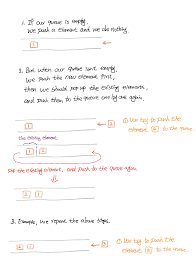 1. If our queue is empty,
we push a element and we do nothing.
1
2. But when our queue isn't empty,
we push the new element first,
then we should pop up the existing elements,
and push them to the queue one by one again.
1
2
① We try to push the
element 2 to the queue.
the existing element
1 2
pop the existing element, and push to the queue again.
2 1
3. Example, We repeat the above steps.
2 1
3
① We try to push the
element 3 to the queue.